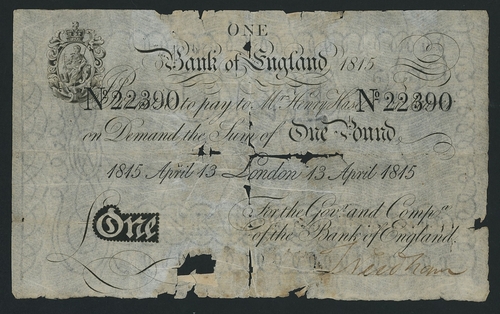 ONE
Bank of England 1815
Nº 22390 to pay to Mr. Henry Hase Nº 22390
on Demand the Sum of One Pound
1815 April 13 London 13 April 1815
For the Govr. and Compa.
One of the Bank of England.